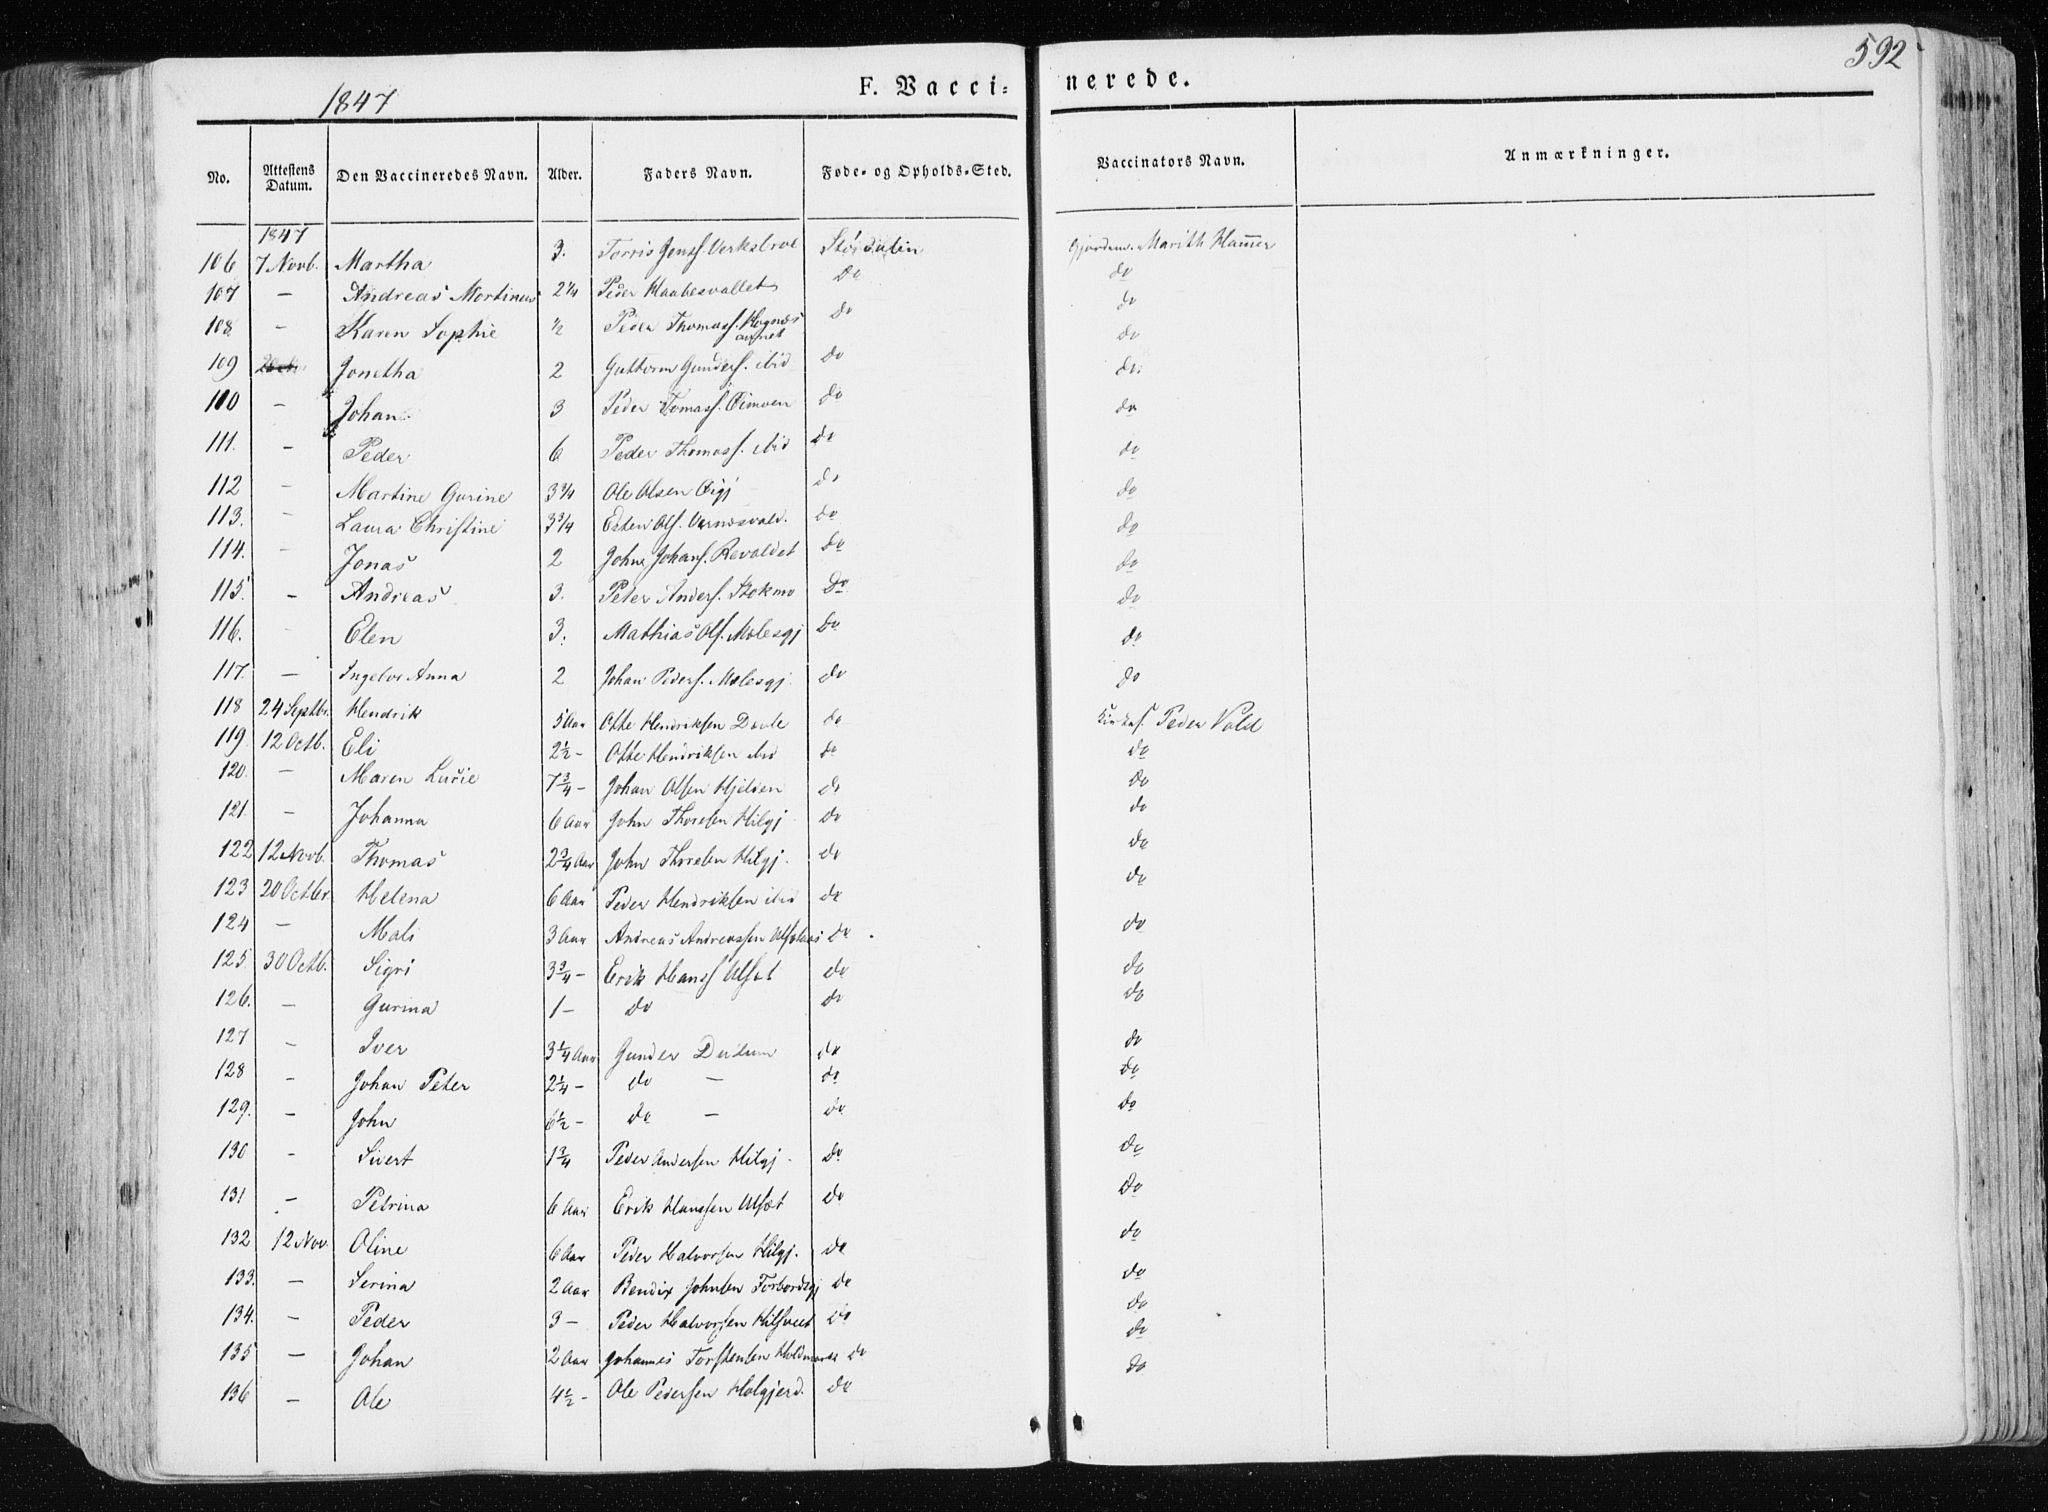 592
1847
F. Vacci= nerede.
No. Attestens Datum. Den Vaccineredes Navn. Alder. Faders Navn. Føde- og Opholds-Sted. Vaccinators Navn. Anmærkninger.
1847
106 7 Novb. Martha 3. Torris Jensf. Størdalen Gjordem. Marith Hamer
107 — Andreas Mortinus 2 1/4 Peder do do
108 - Karen Sophie 1/2 Peder Thomasf. do do
109 Jonetha 2 Guttorm Gundersf. ibid do do
110 - Johan 3 Peder Tomasf. do do
111. - Peder 6 Peder Thomasf. ibid do do
112 - Martine Gurine 3 3/4 Ole Olsen do do
113. - Laura Christine 3 3/4 Esten Olf. do do
114. - Jonas 2 Johan. do do
115. - Andreas 3. Peter Andersf. Stokmo do do
116. - Elen 3. Mathias Olf. Molesgj do do
117. — Ingelve Anna 2 Johan Pedersf. Molesgj. do do
118 24 Septbr. Hendrik 5 Aar Otte Hendriksen do Kirkes. Peder Vold
119. 12 Octb. Eli 2 1/2 — Otte Hendriksen ibid do do
120. — Maren Lucie 7 3/4 — Johan Olsen Hjelsen do do
121. — Johanna 6 Aar John Thoresen Hilgj do do
122 12 Novb. Thomas 2 3/4 Aar John Thoresen Hilgj. do do
123 20 Octbr. Helena 6 Aar Peder Hendriksen ibid do do
124 — Mali 3 Aar Andreas Andreassen do do
125 30 Octb. Sigri 3 3/4 — Erik Hansf. Ulset do do
126. — Gurina 1 — do do do
127 - Iver 3 1/4 Aar Gunder do do
128 - Johan Peter 2 1/4 — do — do do
129. - John 6 1/2 — do — do do
130 - Sivert 1 3/4 Peder Andersen Hilgj. do do
131 - Petrina 6 Aar Erik Hanssen Ulset do do
132 12 Nov. Oline 6 Aar Peder Halvorsen Hilgj. do do
133. — Serina 2 Aar Bendix Johnsen Forbordsgj do do
134. - Peder 3 — Peder Halvorsen do do
135 — Johan 2 Aar Johannes Torstensen do do
136 — Ole 4 1/2 — Ole Pedersen Holgjerd. do do